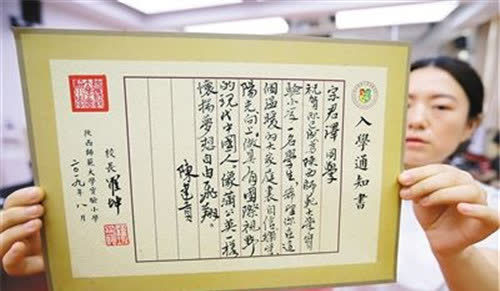 入學通知書
宗君澤 同學
祝賀你成為陝西師範大學實
驗小學一名學生 希望你在這
個溫暖的大家庭裏自信
陽光向上 做具有國際視野
的現代中國人,像蒲公英一樣
懷揣夢想自由飛翔。
校長 坤
陝西師範大學實驗小學
二〇一九年八月